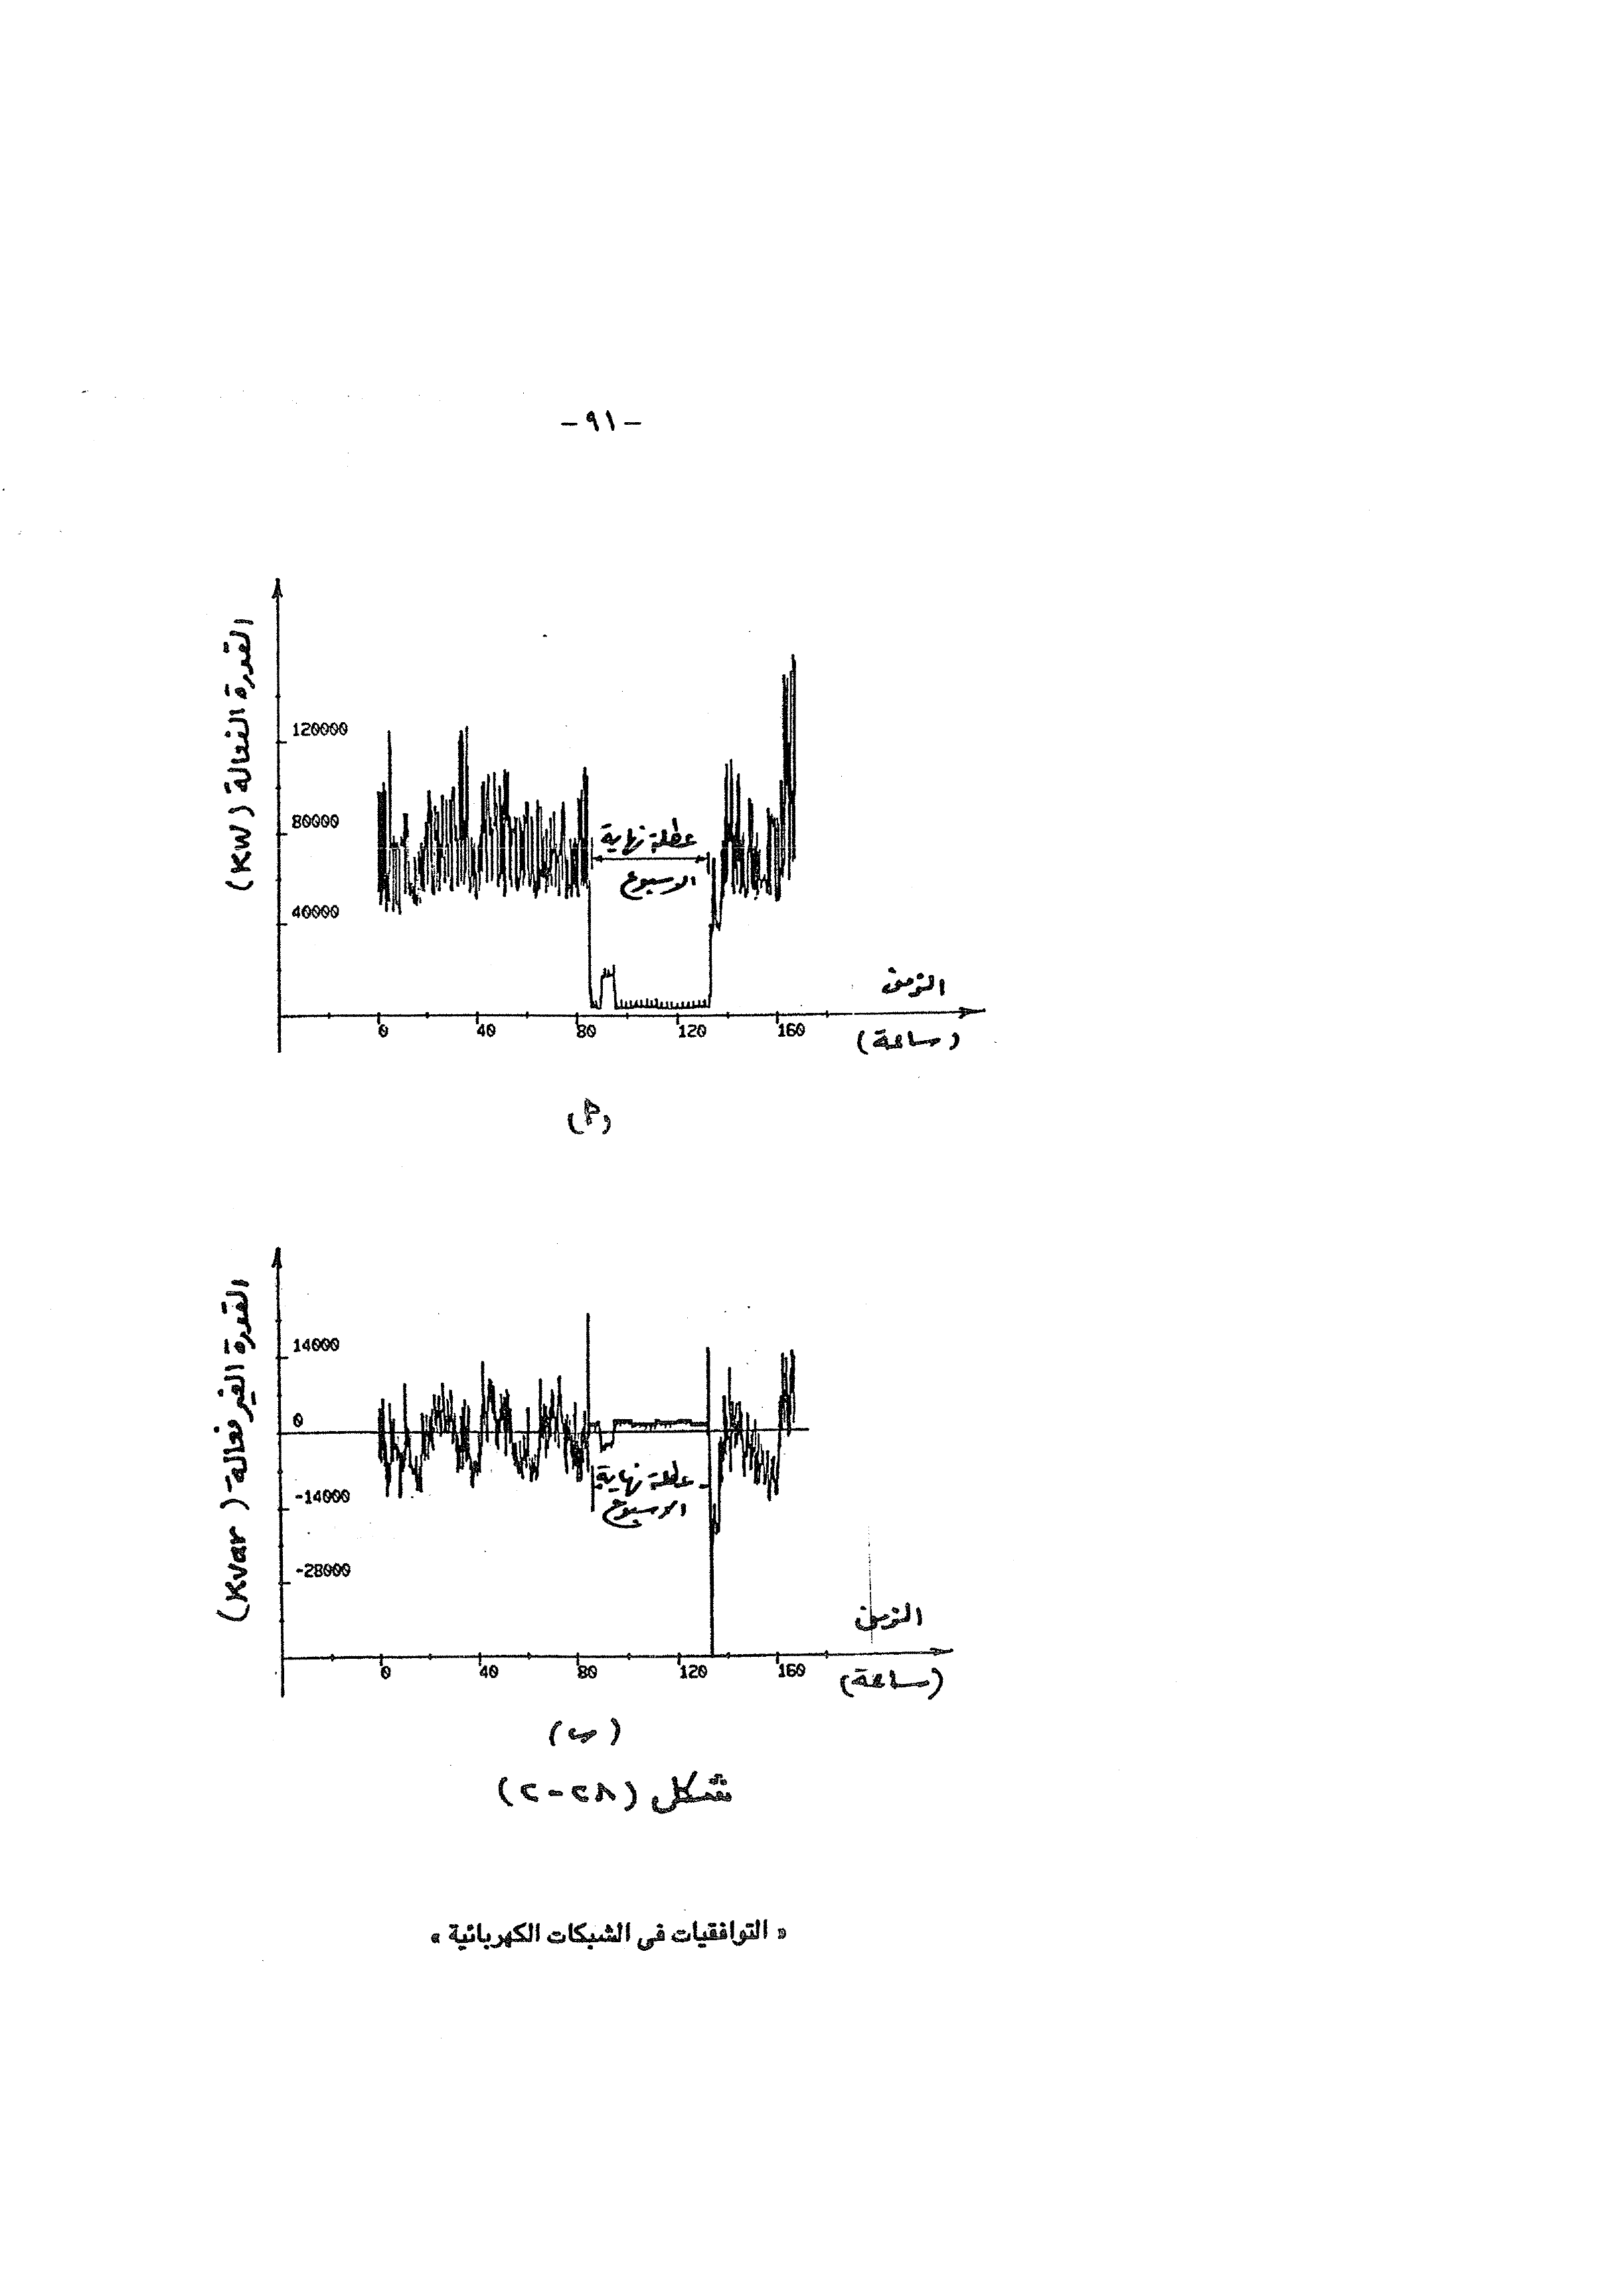 - ٩١ -
القدرة الفعالة (KW)
120000
80000
40000
عطلة نهاية
الاسبوع
الزمن
0 40 80 120 160
(ساعة)
(أ)
القدرة الغير فعالة (Kvar)
14000
0
-14000
-28000
عطلة نهاية
الاسبوع
الزمن
0 40 80 120 160
(ساعة)
(ب)
شكل (٢٨-٢)
« التوافقيات فى الشبكات الكهربائية »